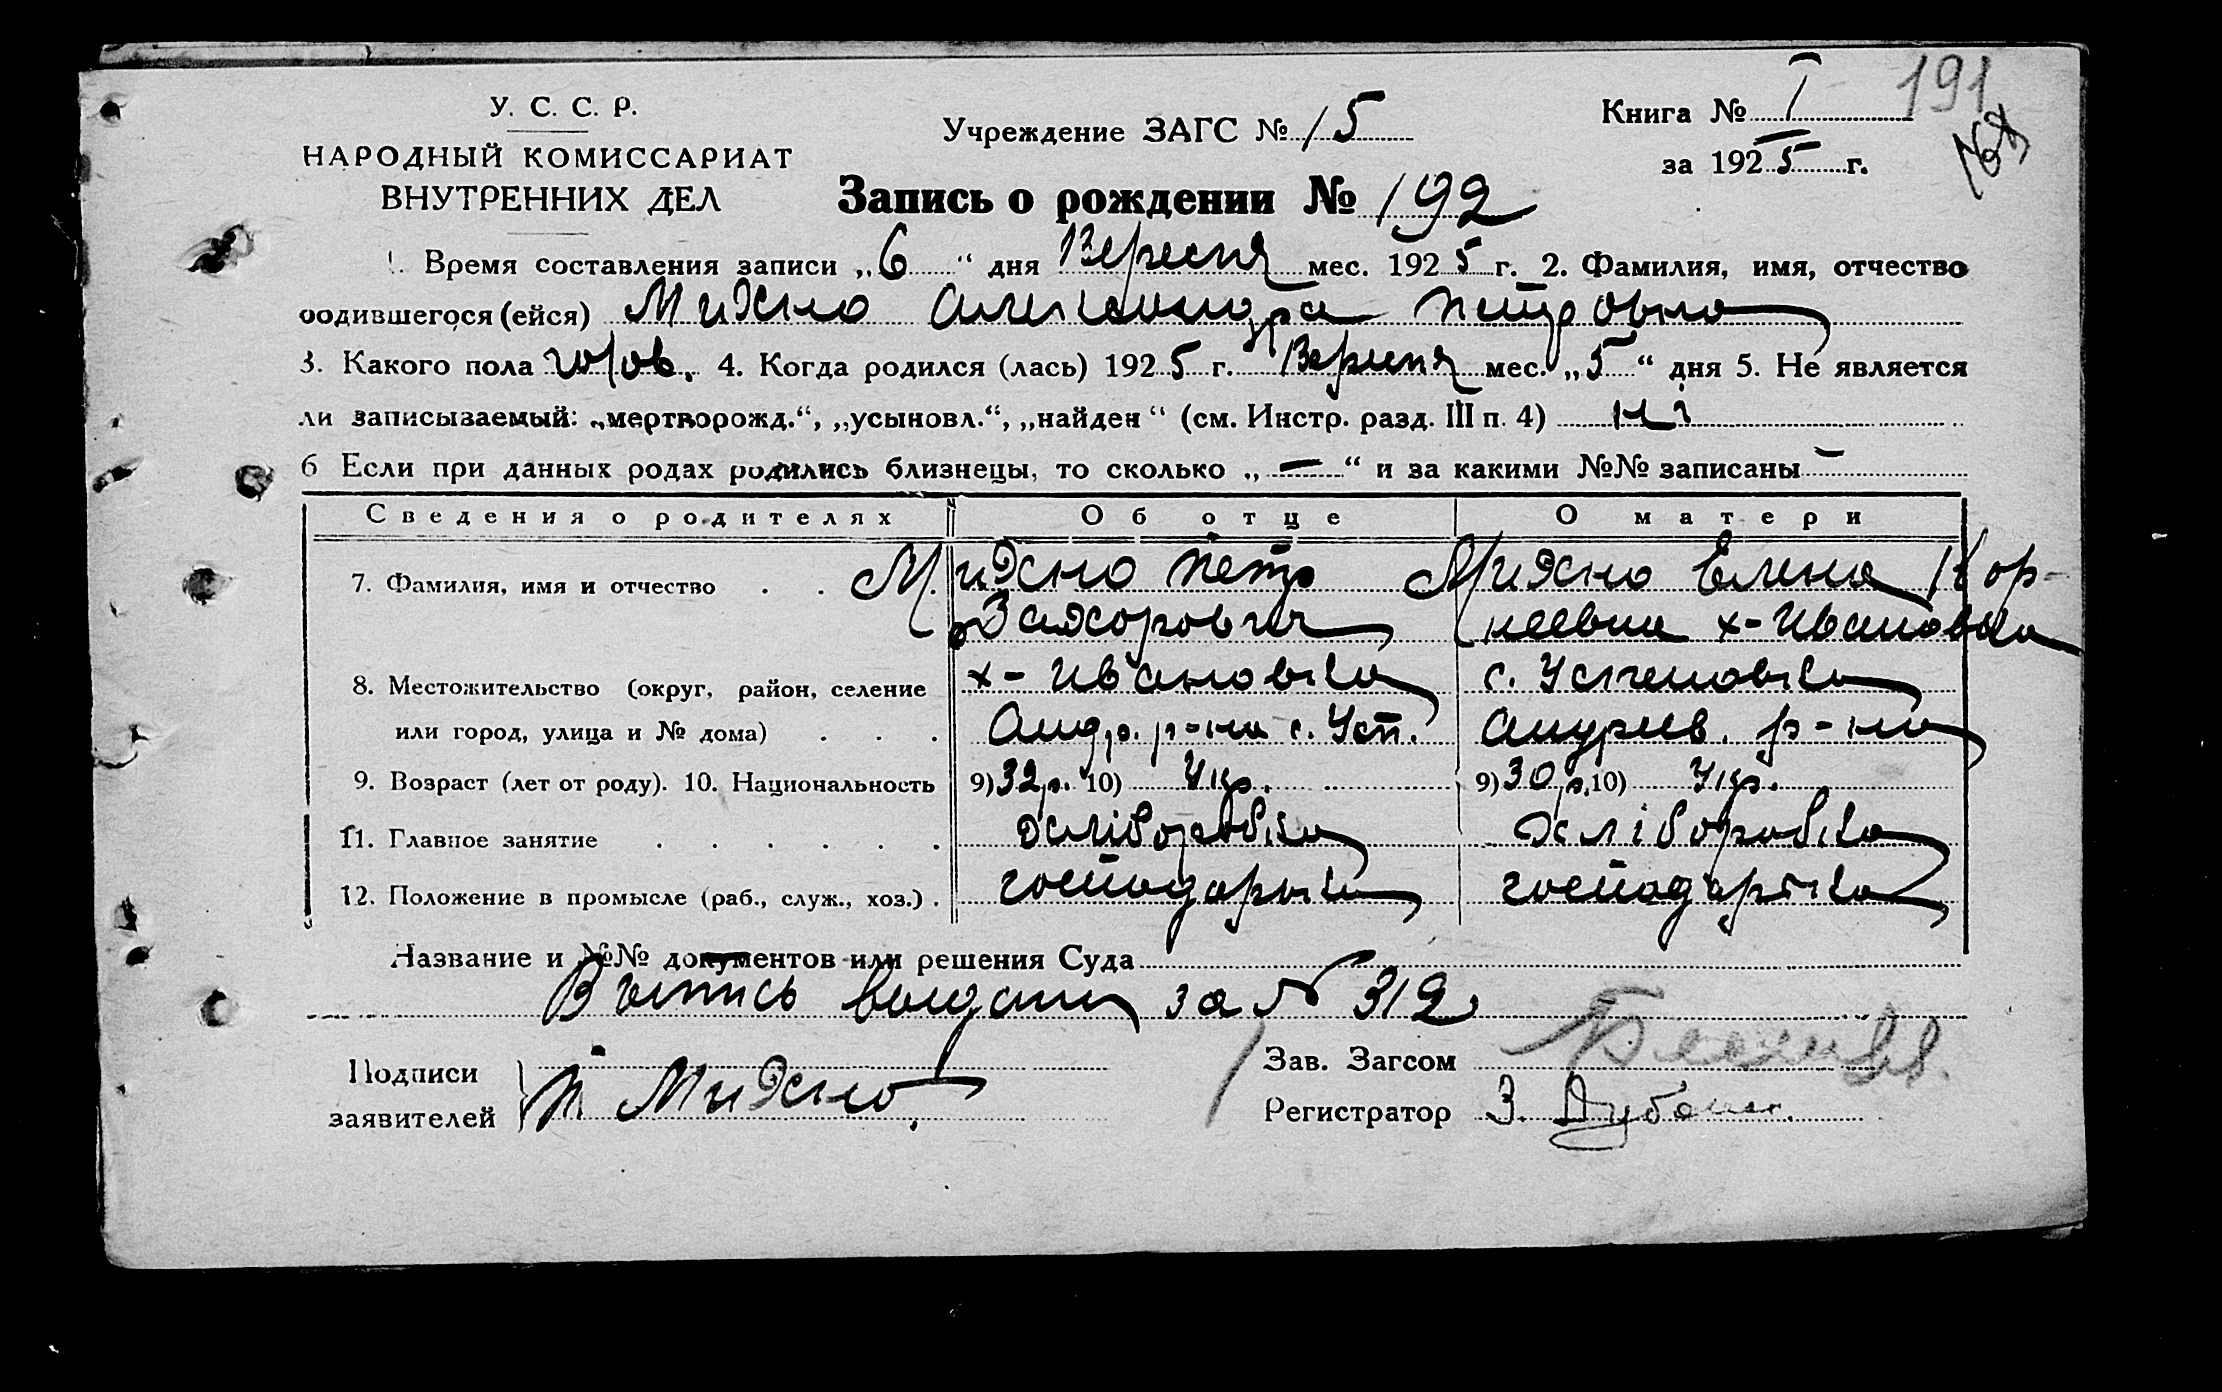 У. С. С. Р.
НАРОДНЫЙ КОМИССАРИАТ
ВНУТРЕННИХ ДЕЛ
Учреждение ЗАГС № 15
Книга № I 191
за 1925 г.
Запись о рождении № 192
1. Время составления записи „6“ дня Вересня мес. 1925 г. 2. Фамилия, имя, отчество
родившегося (ейся) Михно Александра Петровна
3. Какого пола 4. Когда родился (лась) 1925 г. Вересня мес. „5“ дня 5. Не является
ли записываемый: „мертворожд.“, „усыновл.“, „найден“ (см. Инстр. разд. III п. 4) ні
6 Если при данных родах родились близнецы, то сколько „—“ и за какими №№ записаны —
Сведения о родителях Об отце О матери
7. Фамилия, имя и отчество . . Михно Петр Михно Елена Кор-
Захорович неевна х-Ивановка
8. Местожительство (округ, район, селение х-Ивановка с. Успеновка
или город, улица и № дома) . . . Андр. р-на с. Усп. р-на
9. Возраст (лет от роду). 10. Национальность 9) 32 р. 10) Укр. 9) 30 р. 10) Укр.
11. Главное занятие . . . . . . хліборобка хліборобка
12. Положение в промысле (раб., служ., хоз.) . господарька господарька
Название и №№ документов или решения Суда
Выпись выдана за № 312
Подписи
заявителей П Михно
Зав. Загсом
Регистратор З.